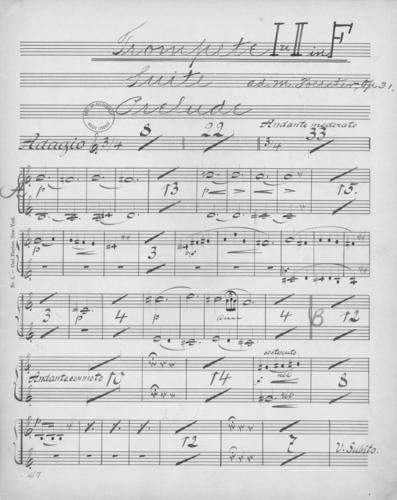 Trompete I u II in F
Suite
Op. 31.
Prelude
8 22 Andante moderato 33
Adagio 3/4 3/4
A p 13 p 15.
p
No. 6. — Carl Fischer, New York.
3 4 p 4 B 12
Andante con moto 14 sostenuto 8
12 7 V. Subito.